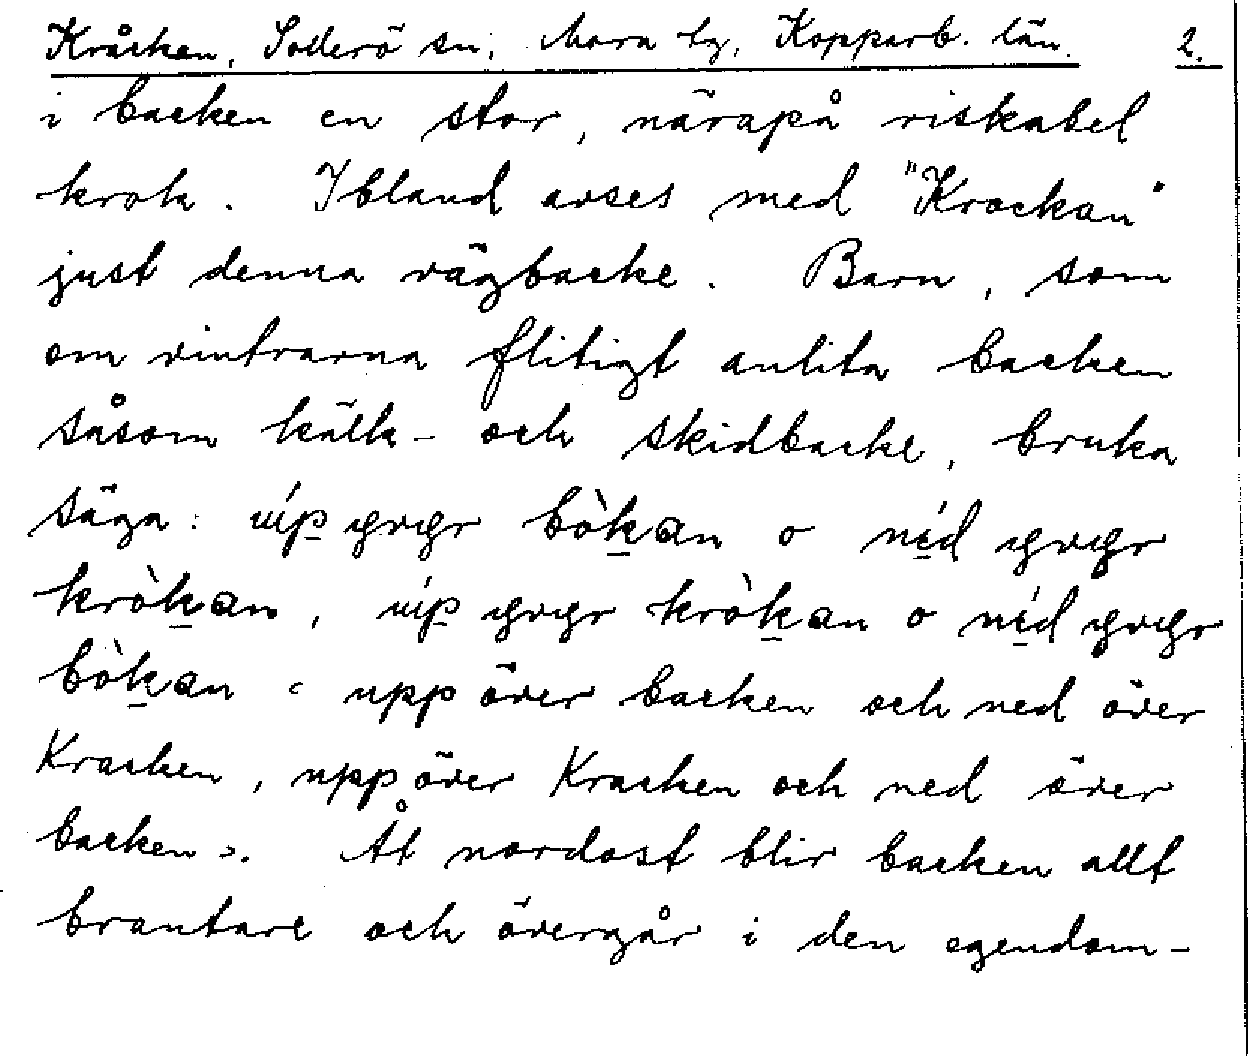 Kråcken, Sollerö sn, Mora tg, Kopparb. län. 2.
i backen en stor, närapå riskabel
krok. Ibland avses med "Krockan"
just denna vägbacke. Barn, som
om vintrarna flitigt anlita backen
såsom kälk- och skidbacke, bruka
säga: úp bòkan o néd
kròkan, úp kròkan o néd
bòkan < upp över backen och ned över
Kracken, upp över Kracken och ned över
backen >. Åt nordost blir backen allt
brantare och övergår i den egendom-